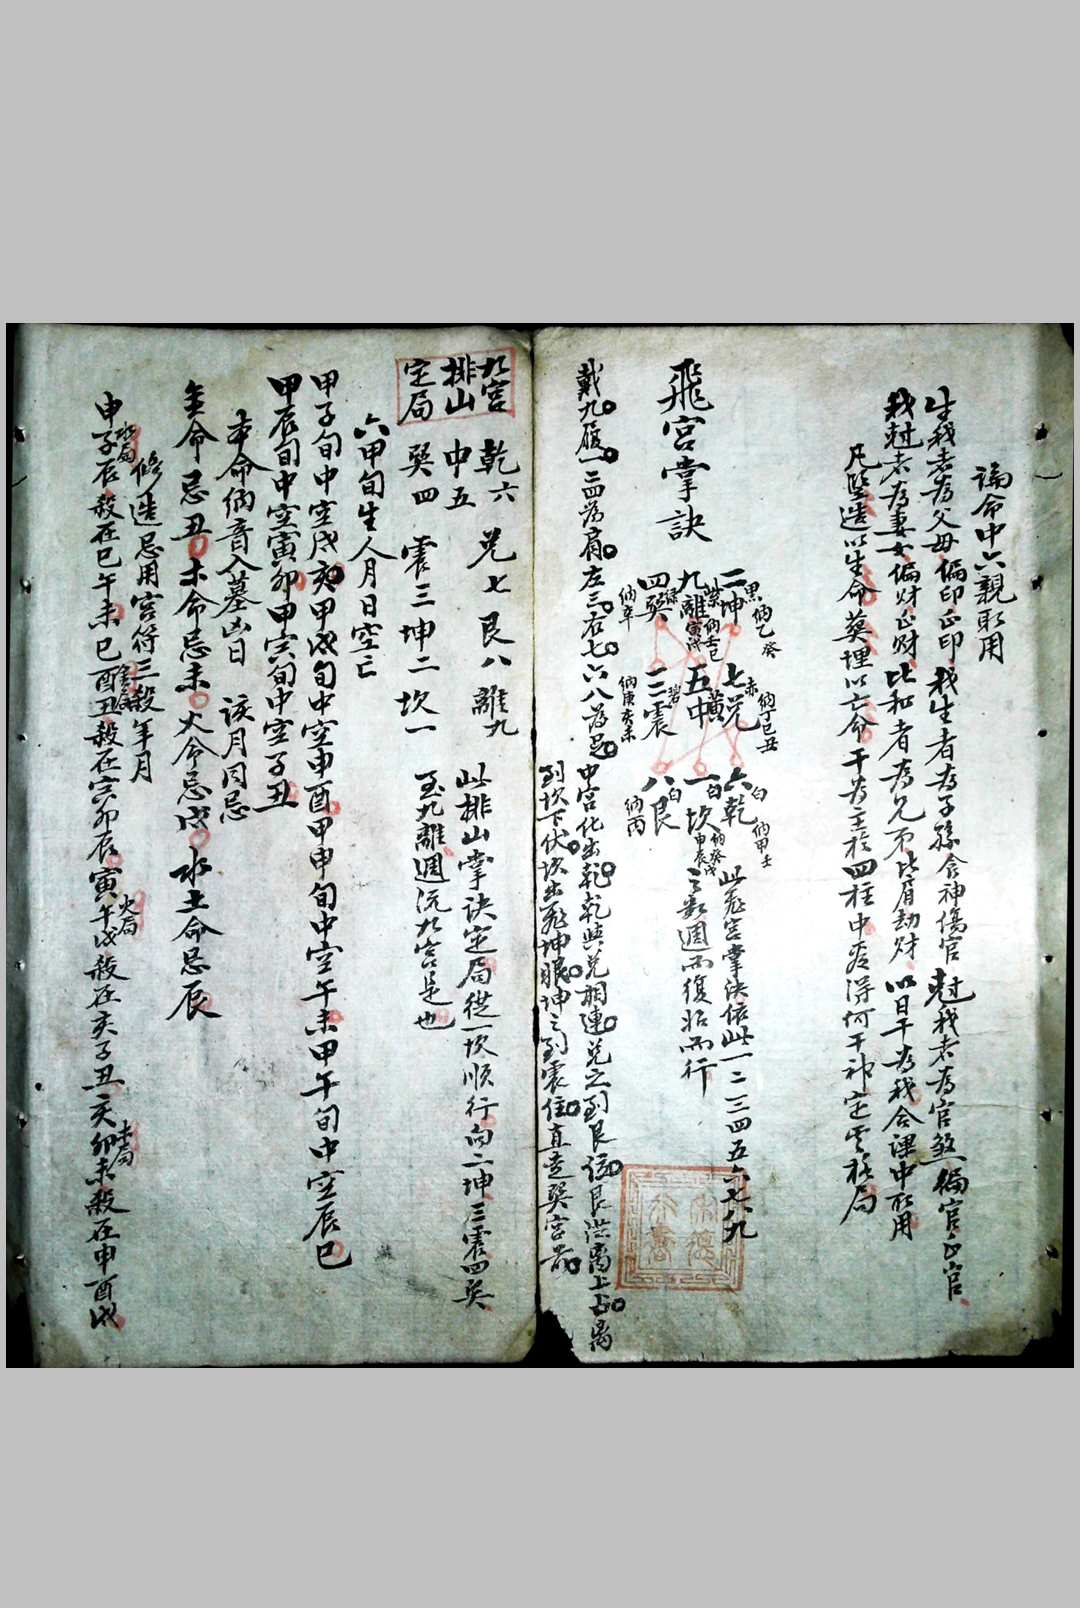 論命中六親取用
生我者為父母偏印正印 我生者為子孫食神傷官 尅我者為官煞偏官正官
我尅者為妻女偏財正財 比和者為兄弟比肩劫財 以日干為我合課中取用
凡竪造以生命葬埋以亡命 干為主於四柱中查得何干神定格局
飛宮掌訣
二黑坤 納乙癸
七赤兌 納丁巳丑
六白乾 納甲壬
九紫離 納壬寅戌
五黃中
一白坎 納癸申辰
四綠巽 納辛
三碧震 納庚亥未
八白艮 納丙
此飛宮掌決依此一二三四五六七八九
之數週而復始而行
戴九履一二四為肩左三右七六八為足
中宮化出乾乾與兌相連兌之到艮 艮 離上 離
到坎下伏坎出飛坤眼坤之到震住直走巽宮
九宮
排山
定局
乾六 兌七 艮八 離九
中五
巽四 震三 坤二 坎一
此排山掌訣定局從一坎順行向二坤三震四巽
至九離週流九宮是也
六甲旬生人月日空亡
甲子旬中空戌亥甲戌旬中空申酉甲申旬中空午未甲午旬中空辰巳
甲辰旬中空寅卯甲寅旬中空子丑
本命納音入墓凶日 該月同忌
金命忌丑木命忌未火命忌戌水土命忌辰
修造忌用宮符三殺年月
申子辰水局殺在巳午未巳酉丑金局殺在寅卯辰寅午戌火局殺在亥子丑亥卯未木局殺在申酉戌